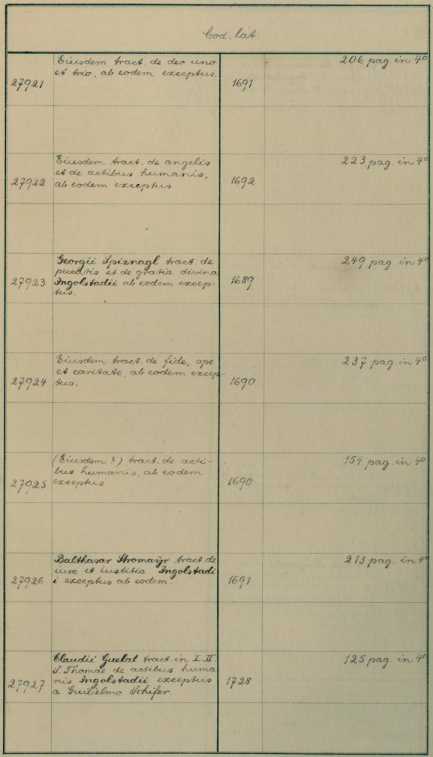 Cod. lat.
Eiusdem tract. de deo uno 206 pag in 4°
et trio, ab eodem exceptus.
27921 1691
Eiusdem tract. de angelis 223 pag. in 4°
et de actibus humanis,
27922 ab eodem exceptus 1692
Georgii Spiznagl tract. de 249 pag. in 4°
peccatis et de gratia divina
27923 Ingolstadii ab eodem excep- 1689
tus.
Eiusdem tract. de fide, spe 237 pag. in 4°
et caritate, ab eodem excep-
27924 tus. 1690
(Eiusdem ?) tract. de acti- 154 pag. in 4°
bus humanis, ab eodem
27925 exceptus 1690
Balthasar Stromayr tract de 213 pag. in 4°
iure et iustitia Ingolstadi
27926 i exceptus ab eodem 1691
Claudii tract in I. II 125 pag. in 4°
S. Thomae de actibus huma
27927 nis, Ingolstadii exceptus 1728
a Guilielmo Schifer.